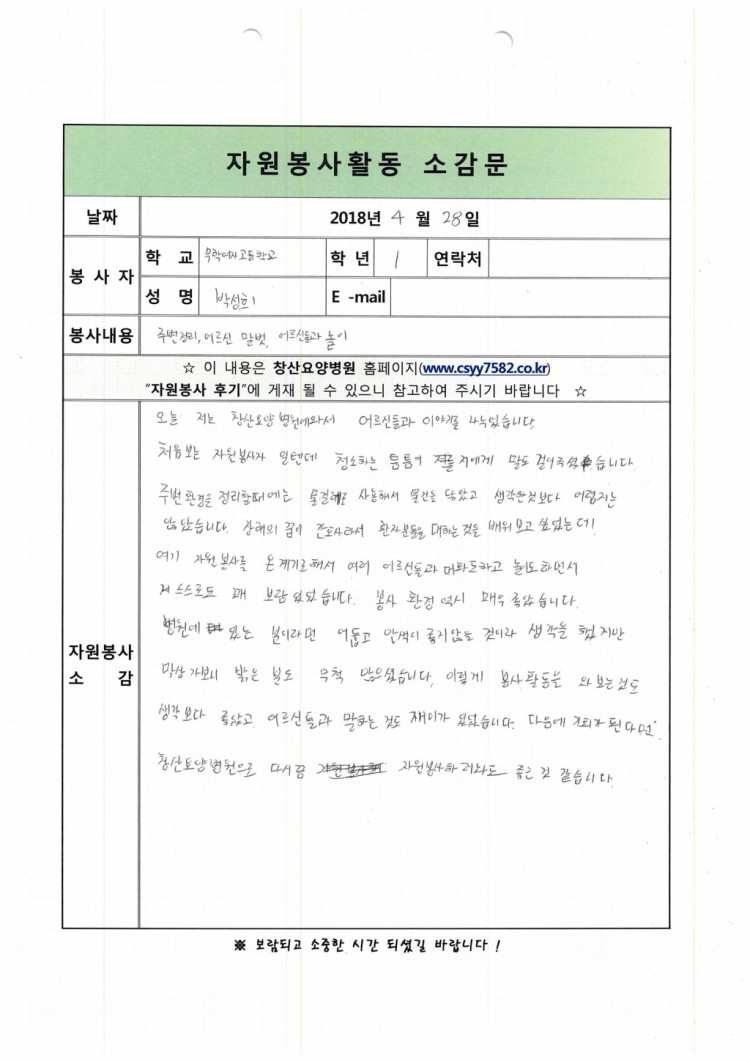 자원봉사활동 소감문
날짜 2018년 4 월 28일
봉 사 자
학 교 무학여자고등학교 학 년 1 연락처
성 명 박성희 E -mail
봉사내용 주변정리, 어르신 말벗, 어르신들과 놀이
☆ 이 내용은 창산요양병원 홈페이지(www.csyy7582.co.kr)
"자원봉사 후기"에 게재 될 수 있으니 참고하여 주시기 바랍니다 ☆
자원봉사
소 감
오늘 저는 창산요양병원에와서 어르신들과 이야기를 나누었습니다.
처음보는 자원봉사자 일텐데 청소하는 틈틈이 저에게 말도 걸어주셨습니다.
주변환경을 정리할때에는 물걸레로 사용해서 물건을 닦았고 생각한것보다 어렵지는
않았습니다. 장래의 꿈이 간호사라서 환자분들을 대하는 것을 배워보고 싶었는데!
여기 자원봉사를 온 계기로해서 여러 어르신들과 하고 놀기도하면서
저 스스로도 꽤 보람있었습니다. 봉사 환경 역시 매우 좋았습니다.
병원에 있는 분이라면 어둡고 안색이 좋지않은 것이라 생각을 했지만
막상 가보니 밝은 분도 무척 많으셨습니다, 이렇게 봉사활동을 와보는것도
생각보다 좋았고 어르신들과 말하는 것도 재미가 있었습니다. 다음에 기회가 된다면
창산요양병원으로 다시금 자원봉사하러와도 좋은 것 같습니다.
※ 보람되고 소중한 시간 되셨길 바랍니다 !